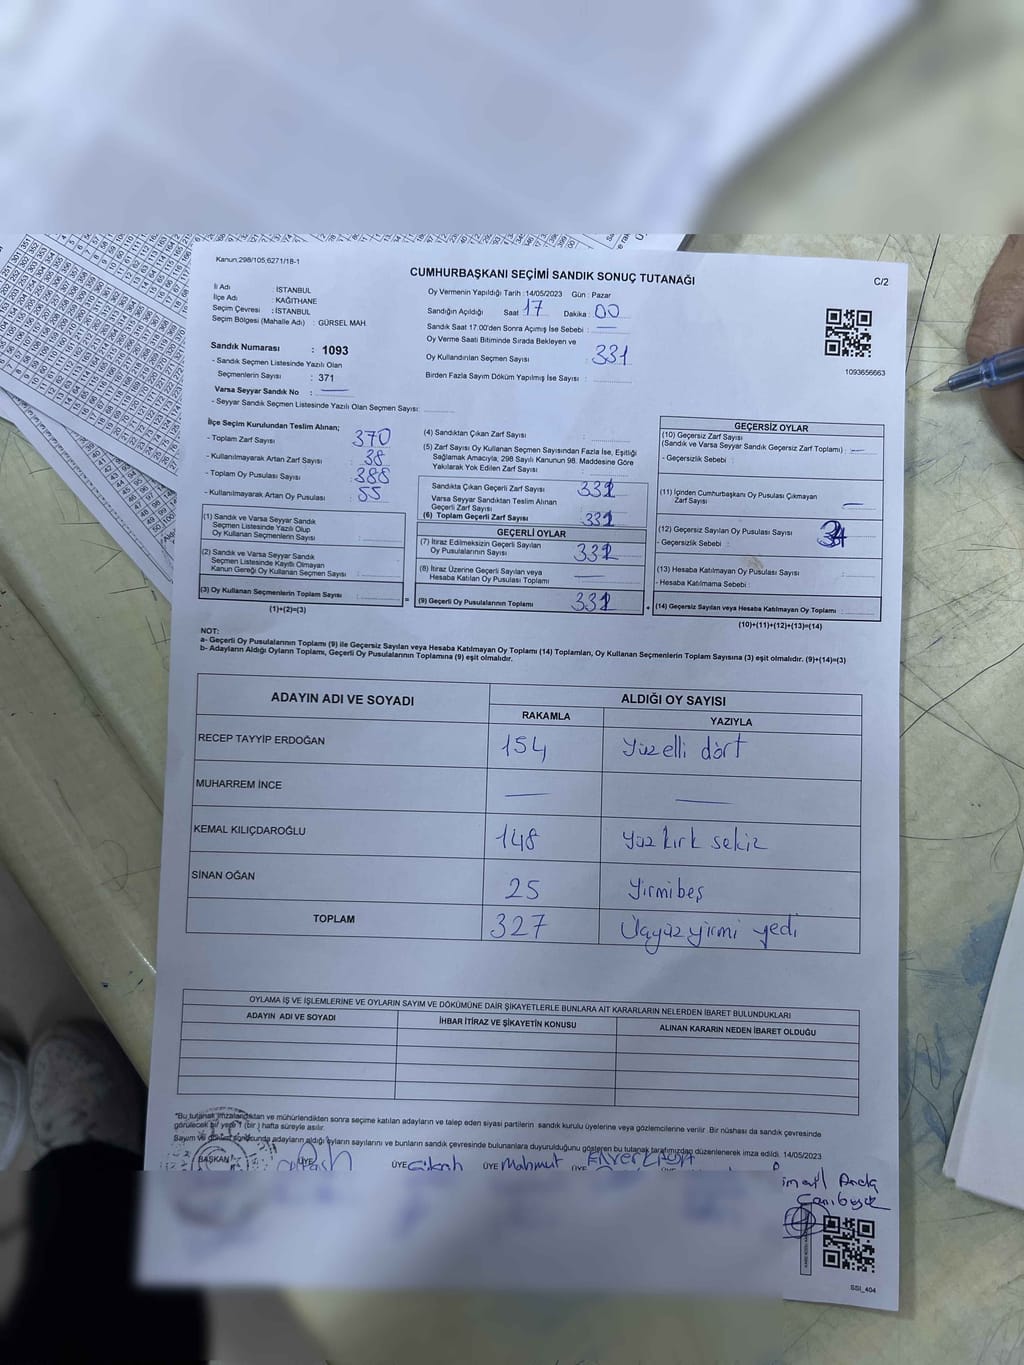 Kanun;298/105;6271/18-1
CUMHURBAŞKANI SEÇİMİ SANDIK SONUÇ TUTANAĞI
C/2
İl Adı : İSTANBUL
İlçe Adı : KAĞITHANE
Seçim Çevresi : İSTANBUL
Seçim Bölgesi (Mahalle Adı) : GÜRSEL MAH.
Sandık Numarası : 1093
- Sandık Seçmen Listesinde Yazılı Olan
Seçmenlerin Sayısı : 371
Varsa Seyyar Sandık No : —
- Seyyar Sandık Seçmen Listesinde Yazılı Olan Seçmen Sayısı:
Oy Vermenin Yapıldığı Tarih : 14/05/2023 Gün : Pazar
Sandığın Açıldığı Saat : 17 Dakika : 00
Sandık Saat 17.00'den Sonra Açımış İse Sebebi : —
Oy Verme Saati Bitiminde Sırada Bekleyen ve
Oy Kullandırılan Seçmen Sayısı : 331
Birden Fazla Sayım Döküm Yapılmış İse Sayısı :
1093656663
İlçe Seçim Kurulundan Teslim Alınan;
- Toplam Zarf Sayısı : 370
- Kullanılmayarak Artan Zarf Sayısı : 38
- Toplam Oy Pusulası Sayısı : 388
- Kullanılmayarak Artan Oy Pusulası : 55
(1) Sandık ve Varsa Seyyar Sandık
Seçmen Listesinde Yazılı Olup
Oy Kullanan Seçmenlerin Sayısı :
(2) Sandık ve Varsa Seyyar Sandık
Seçmen Listesinde Kayıtlı Olmayan
Kanun Gereği Oy Kullanan Seçmen Sayısı :
(3) Oy Kullanan Seçmenlerin Toplam Sayısı :
(1)+(2)=(3)
(4) Sandıktan Çıkan Zarf Sayısı :
(5) Zarf Sayısı Oy Kullanan Seçmen Sayısından Fazla İse, Eşitliği
Sağlamak Amacıyla, 298 Sayılı Kanunun 98. Maddesine Göre
Yakılarak Yok Edilen Zarf Sayısı :
Sandıkta Çıkan Geçerli Zarf Sayısı :
Varsa Seyyar Sandıktan Teslim Alınan
Geçerli Zarf Sayısı :
(6) Toplam Geçerli Zarf Sayısı :
GEÇERLİ OYLAR
(7) İtiraz Edilmeksizin Geçerli Sayılan
Oy Pusulalarının Sayısı :
(8) İtiraz Üzerine Geçerli Sayılan veya
Hesaba Katılan Oy Pusulası Toplamı : —
= (9) Geçerli Oy Pusulalarının Toplamı :
GEÇERSİZ OYLAR
(10) Geçersiz Zarf Sayısı
(Sandık ve Varsa Seyyar Sandık Geçersiz Zarf Toplamı) : —
- Geçersizlik Sebebi :
(11) İçinden Cumhurbaşkanı Oy Pusulası Çıkmayan
Zarf Sayısı : —
(12) Geçersiz Sayılan Oy Pusulası Sayısı :
- Geçersizlik Sebebi :
(13) Hesaba Katılmayan Oy Pusulası Sayısı :
- Hesaba Katılmama Sebebi :
+ (14) Geçersiz Sayılan veya Hesaba Katılmayan Oy Toplamı :
(10)+(11)+(12)+(13)=(14)
NOT:
a- Geçerli Oy Pusulalarının Toplamı (9) ile Geçersiz Sayılan veya Hesaba Katılmayan Oy Toplamı (14) Toplamları, Oy Kullanan Seçmenlerin Toplam Sayısına (3) eşit olmalıdır. (9)+(14)=(3)
b- Adayların Aldığı Oyların Toplamı, Geçerli Oy Pusulalarının Toplamına (9) eşit olmalıdır.
ADAYIN ADI VE SOYADI ALDIĞI OY SAYISI
RAKAMLA YAZIYLA
RECEP TAYYİP ERDOĞAN 154 Yüzelli dört
MUHARREM İNCE — —
KEMAL KILIÇDAROĞLU 148 Yüz kırk sekiz
SİNAN OĞAN 25 Yirmibeş
TOPLAM 327 Üçyüzyirmi yedi
OYLAMA İŞ VE İŞLEMLERİNE VE OYLARIN SAYIM VE DÖKÜMÜNE DAİR ŞİKAYETLERLE BUNLARA AİT KARARLARIN NELERDEN İBARET BULUNDUKLARI
ADAYIN ADI VE SOYADI İHBAR İTİRAZ VE ŞİKAYETİN KONUSU ALINAN KARARIN NEDEN İBARET OLDUĞU
*Bu tutanak imzalandıktan ve mühürlendikten sonra seçime katılan adayların ve talep eden siyasi partilerin sandık kurulu üyelerine veya gözlemcilerine verilir. Bir nüshası da sandık çevresinde
görülecek bir yere 1 (bir) hafta süreyle asılır.
Sayım ve döküm sonucunda adayların aldığı oyların sayılarını ve bunların sandık çevresinde bulunanlara duyurulduğunu gösteren bu tutanak tarafımızdan düzenlenerek imza edildi. 14/05/2023
BAŞKAN ÜYE ÜYE ÜYE Mahmut ÜYE
SSI_404